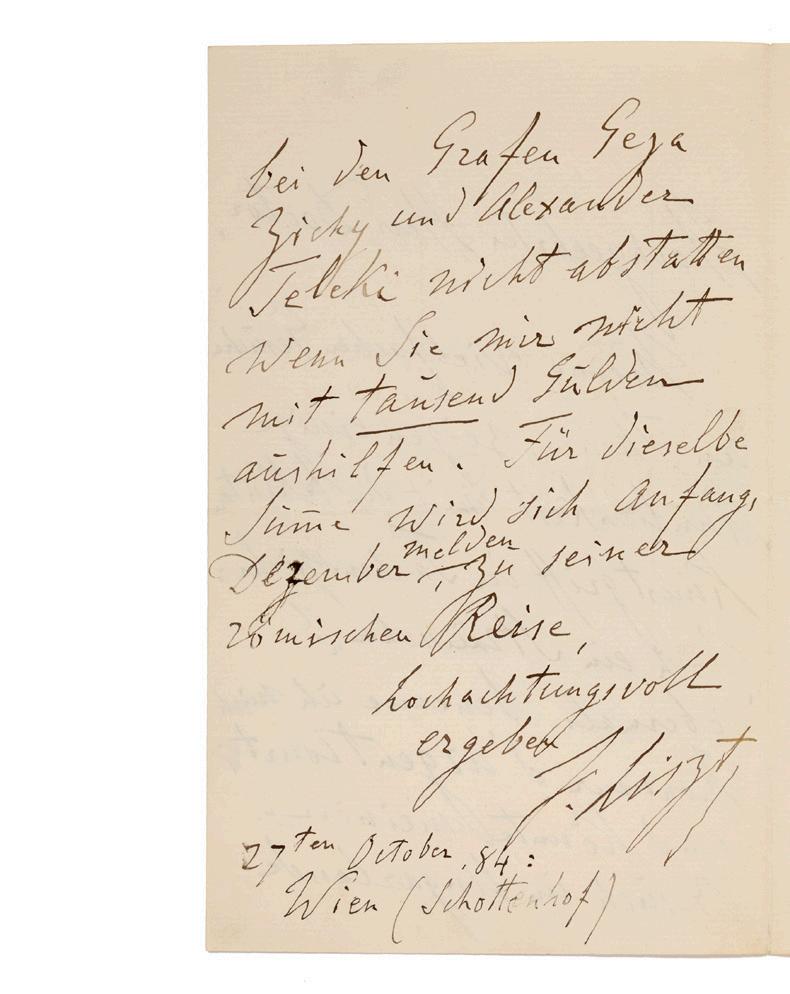 bei den Grafen Geza
Zichy und Alexander
Teleki nicht abstatten
wenn Sie mir nicht
mit tausend Gulden
aushilfen. Für dieselbe
Sum̄e wird sich Anfang,
Dezember melden, zu seiner
römischen Reise,
hochachtungsvoll
ergeben
F. Liszt
27ten October, 84:
Wien (Schottenhof)